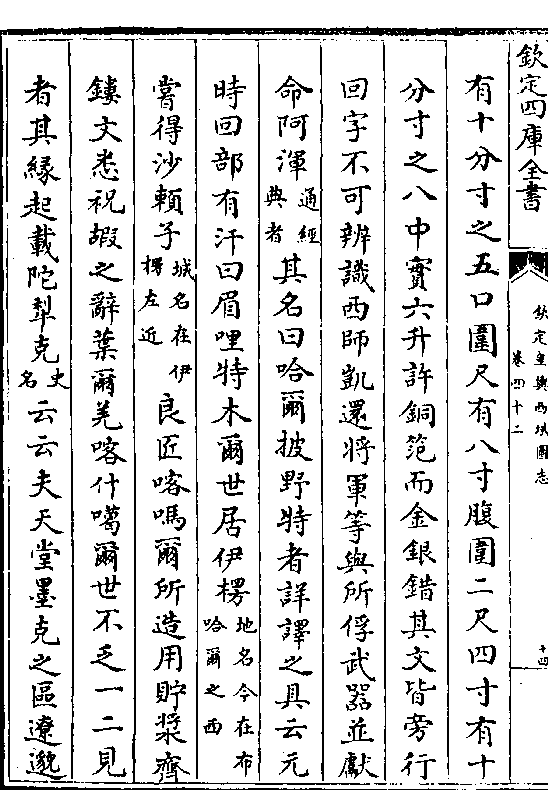 欽定四庫全書
欽定皇輿西域圖志
卷四十二
十四
有十分寸之五口圍尺有八寸腹圍二尺四寸有十
分寸之八中實六升許銅笵而金銀錯其文皆旁行
回字不可辨識西師凱還將軍等與所俘武器並獻
命阿渾通經典者其名曰哈爾披野特者詳譯之具云元
時回部有汗曰眉哩特木爾世居伊楞地名今在布哈爾之西
嘗得沙賴子城名在伊楞左近良匠喀嗎爾所造用貯漿齊
鏤文悉祝嘏之辭葉爾羌喀什噶爾世不乏一二見
者其緣起載陀犁克史名云云夫天堂墨克之區遼邈